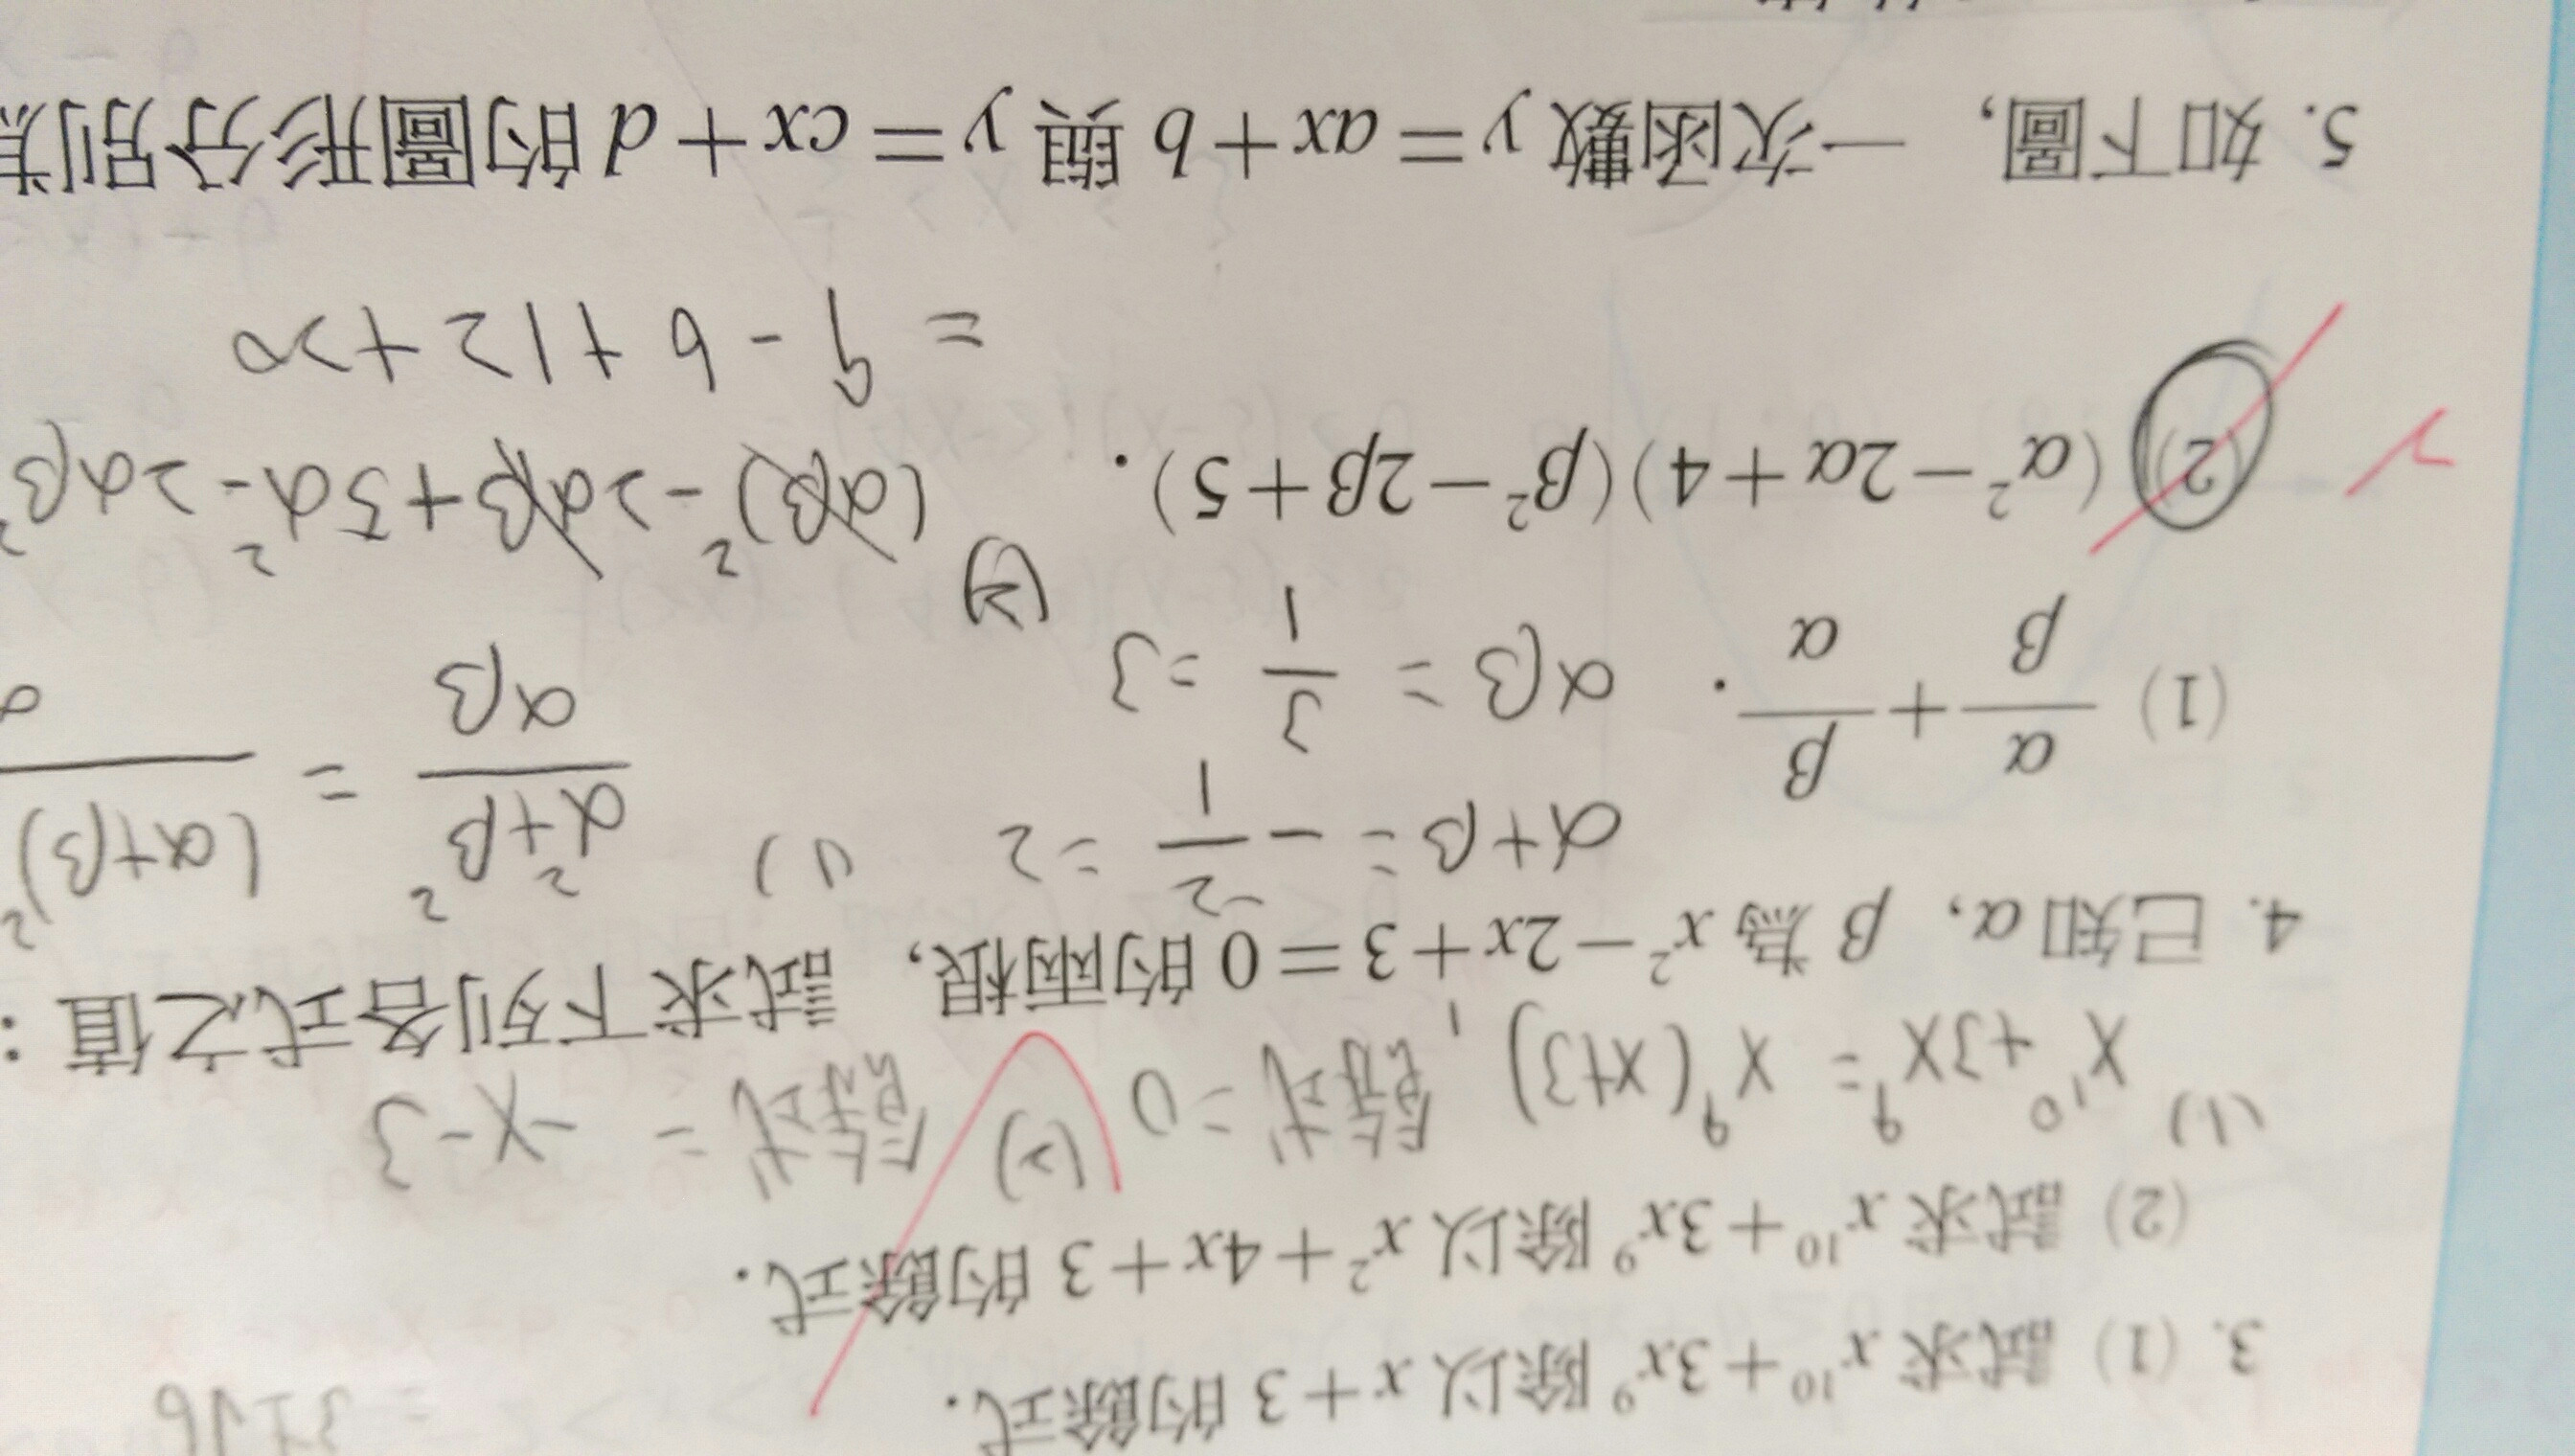 3. (1) 試求 x¹⁰+3x⁹ 除以 x+3 的餘式.
(2) 試求 x¹⁰+3x⁹ 除以 x²+4x+3 的餘式.
(1) x¹⁰+3x⁹=x⁹(x+3), 餘式=0 (2) 餘式=-x-3
4. 已知 α, β 為 x²-2x+3=0 的兩根, 試求下列各式之值:
α+β=-\frac{-2}{1}=2 (1) \frac{α²+β²}{αβ}=\frac{(α+β)²
(1) \frac{α}{β}+\frac{β}{α}. αβ=\frac{3}{1}=3
(2) (α²-2α+4)(β²-2β+5). (2) (αβ)²-2αβ+5α²-2αβ²
=9-6+12+20
5. 如下圖, 一次函數 y=ax+b 與 y=cx+d 的圖形分別